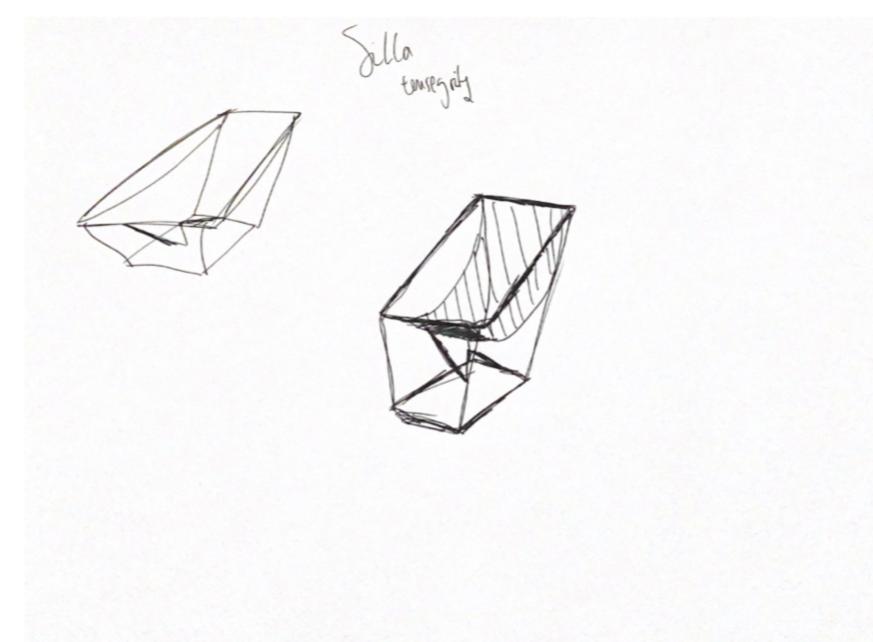 Silla
tensegrity